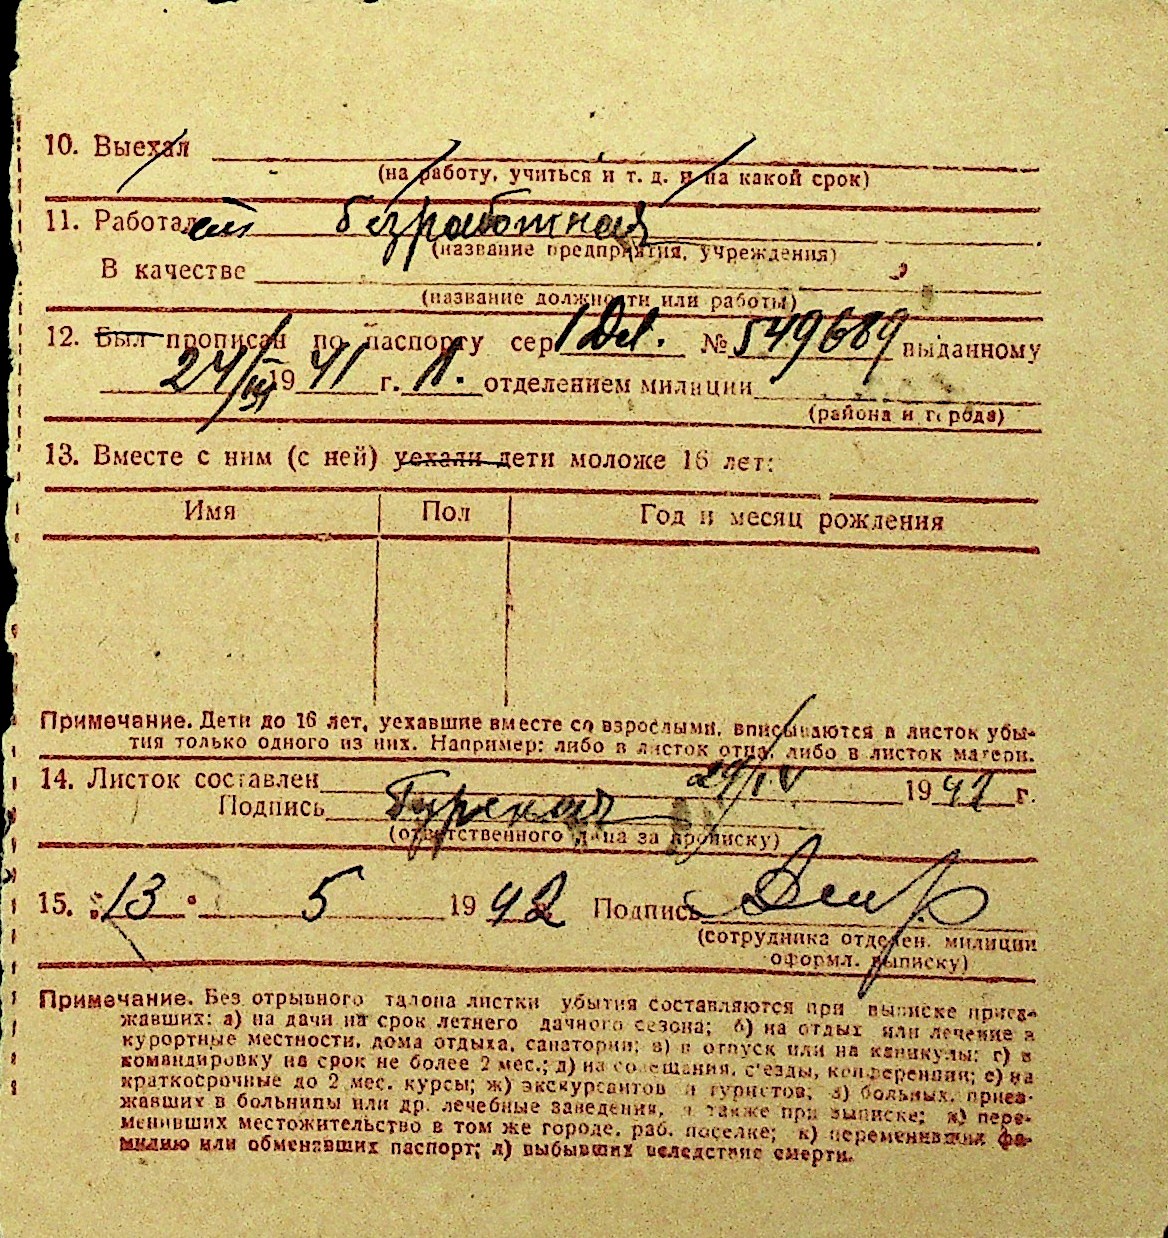 10. Выехал
(на работу, учиться и т. д. и на какой срок)
11. Работал безработная
(название предприятия, учреждения)
В качестве
(название должности или работы)
12. Был прописан по паспорту сер № 549689 выданному
24 19 41 г. 11. отделением милиции
(района и города)
13. Вместе с ним (с ней) уехали дети моложе 16 лет:
Имя Пол Год и месяц рождения
Примечание. Дети до 16 лет, уехавшие вместе со взрослыми, вписываются в листок убы-
тия только одного из них. Например: либо в листок отца, либо в листок матери.
14. Листок составлен 29/IV 1942 г.
Подпись
(ответственного лица за прописку)
15. „13" 5 1942 Подпись
(сотрудника отделен. милиции
оформл. выписку)
Примечание. Без отрывного талона листки убытия составляются при выписке приез-
жавших: а) на дачи на срок летнего дачного сезона; б) на отдых или лечение в
курортные местности, дома отдыха, санатории; в) в отпуск или на каникулы; г) в
командировку на срок не более 2 мес.; д) на совещания, с'езды, конференции; е) на
краткосрочные до 2 мес. курсы; ж) экскурсантов и туристов; з) больных, приез-
жавших в больницы или др. лечебные заведения, а также при выписке; и) пере-
менивших местожительство в том же городе, раб. поселке; к) переменивших фа-
милию или обменявших паспорт; л) выбывших вследствие смерти.